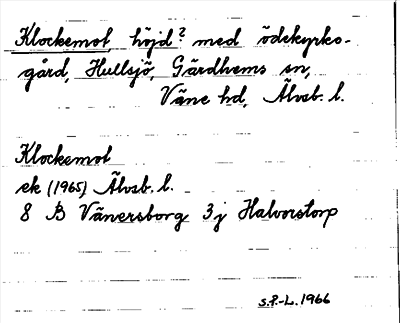 Klockemot höjd? med ödekyrko-
gård, Hullsjö, Gärdhems sn,
Väne hd, Älvsb. l.
Klockemot
ek (1965) Älvsb. l.
8 B Vänersborg 3j Halvorstorp
S.P.-L. 1966